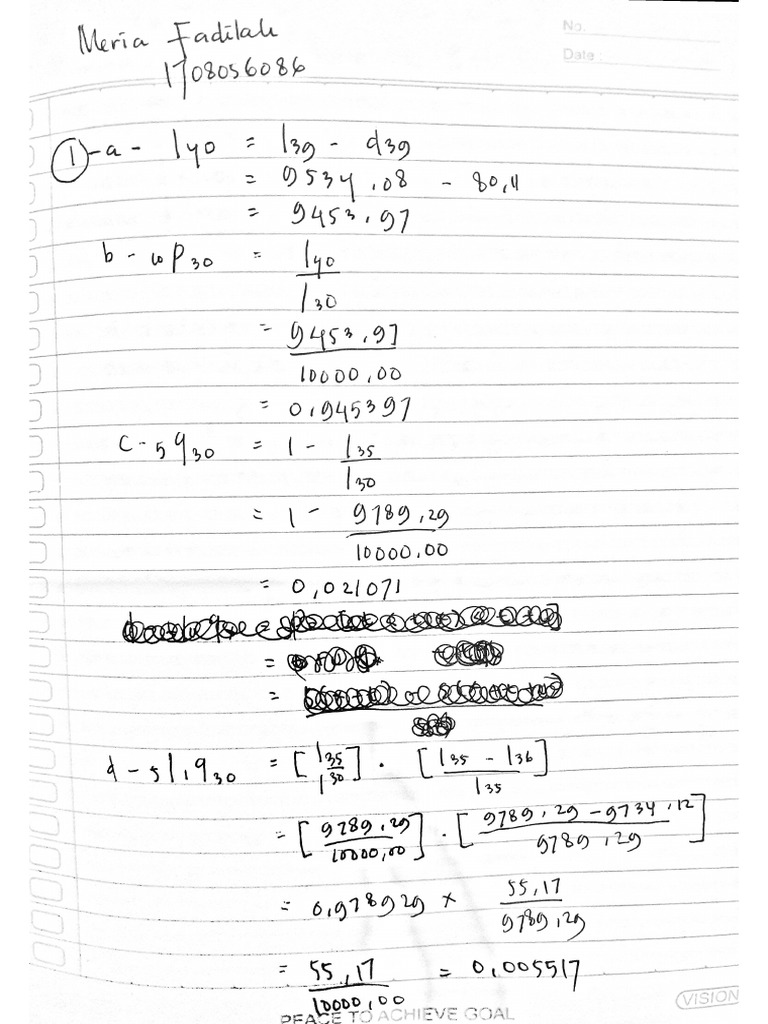 No.
Date :
Meria Fadilah
1708056086
① -a- l40 = l39 - d39
= 9534,08 - 80,11
= 9453,97
b - 10P30 = l40
l30
= 9453,97
10000,00
= 0,945397
c - 5q30 = 1 - l35
l30
= 1 - 9789,29
10000,00
= 0,021071
d - 5|1q30 = [l35/l30] . [l35 - l36 / l35]
= [9789,29/10000,00] . [9789,29 - 9734,12 / 9789,29]
= 0,978929 x 55,17
9789,29
= 55,17 = 0,005517
10000,00
VISION
PEACE TO ACHIEVE GOAL